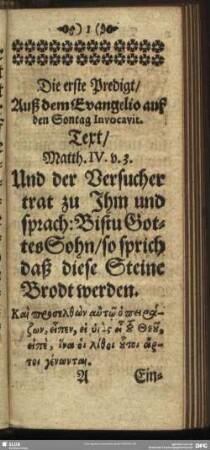 ) 1 (
Die erste Predigt/
Auß dem Evangelio auf
den Sontag Invocavit.
Text/
Matth. IV. v. 3.
Und der Versucher
trat zu Ihm und
sprach: Bistu Got-
tes Sohn/ so sprich
daß diese Steine
Brodt werden.
Καὶ προσελθὼν αὐτῷ ὁ πειρά-
ζων, εἶπεν, εἰ ὑιὸς εἶ τοῦ Θεοῦ,
εἰπὲ, ἵνα οἱ λίθοι οὗτοι ἄρ-
τοι γένωνται.
A Ein-
SLUB
DFG